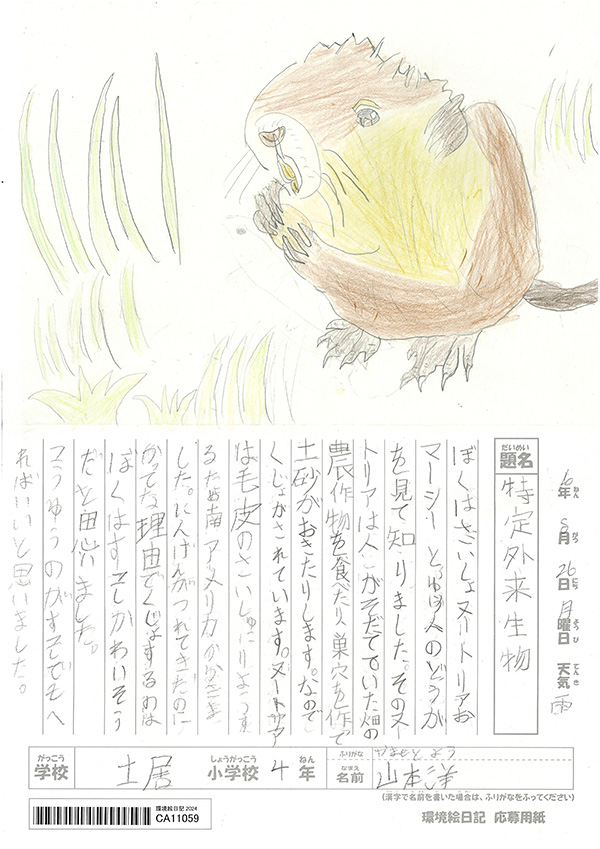 6年 8月 26日 月曜日 天気 雨
ねん がつ にち ようび てんき
だいめい
題名 特定外来生物
ぼくはさいしょヌートリアお
マーシーとゆう人のどうが
を見て知りました。そのヌー
トリアは人がそだてていた畑の
農作物を食べたり巣穴を作って
土砂がおきたりします。なので
くじょがされています。ヌートリア
は毛皮のさいしゅにりようす
るため南アメリカからきま
した。にんげんがつれてきたのに
かってな理由でくじょするのは
ぼくはすこしかわいそう
だと思いました。
こうゆうのがすこしでもへ
ればいいと思いました。
がっこう しょうがっこう ねん
学校 土居 小学校 4年
ふりがな やまもと よう
なまえ
名前 山本洋
(漢字で名前を書いた場合は、ふりがなをふってください)
環境絵日記2024
CA11059
環境絵日記 応募用紙